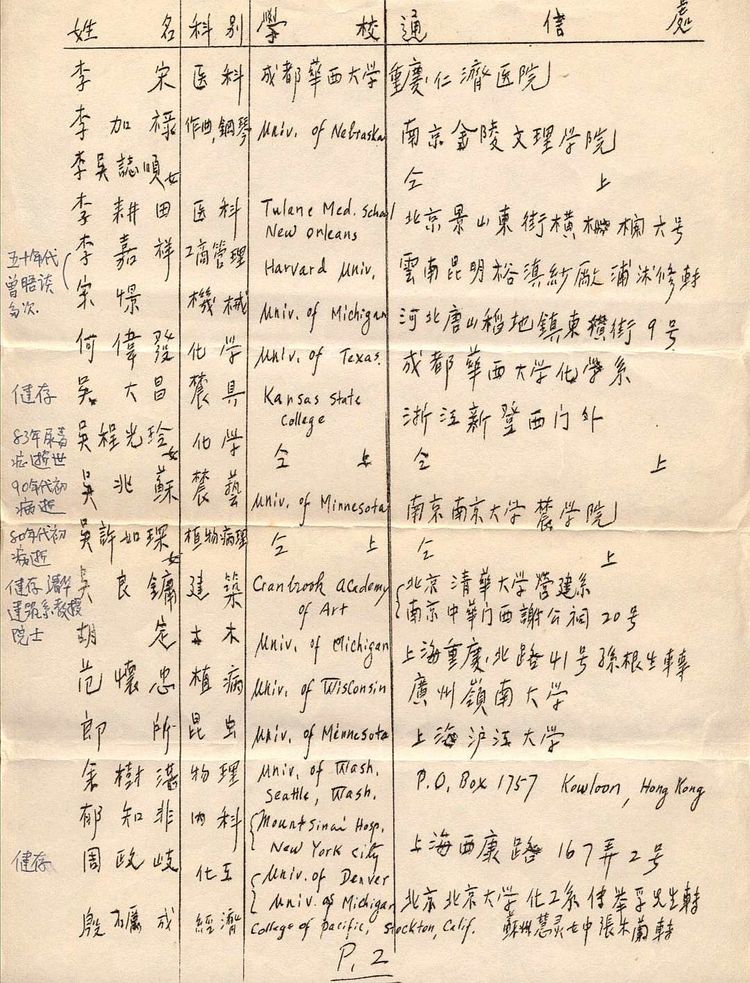 姓 名 科 别 學 校 通 信 處
李 宋 医 科 成都華西大学 重慶仁濟医院
李 加 祿 作曲,鋼琴 Univ. of Nebraska 南京金陵文理学院
李吴誌順女 仝 上
李 耕 田 医 科 Tulane Med. School New Orleans 北京景山東街横 六号
李 嘉 祥 工商管理 Harvard Univ. 雲南昆明裕滇紗廠 轉
五十年代
曾晤谈
多次.
宋 憬 機 械 Univ. of Michigan 河北唐山稻地鎮東横街9号
何 偉 發 化 学 Univ. of Texas. 成都華西大学化学系
健存 吴 大 昌 農 具 Kansas State College 浙江新登西门外
83年尿毒
症逝世
吴程光玲女 化学 仝 上 仝 上
90年代初
病逝
吴 兆 蘇 農 藝 Univ. of Minnesota 南京南京大学農学院
80年代初
病逝
吴許如琛女 植物病理 仝 上 仝 上
健存 清华
建筑系教授
院士
吴 良 鏞 建 築 Cranbrook Academy of Art 北京清華大学營建系
南京中華门西謝公祠20号
胡 定 土 木 Univ. of Michigan 上海重慶北路41号孫根生轉
范 懷 忠 植 病 Univ. of Wisconsin 廣州嶺南大学
郎 所 昆 虫 Univ. of Minnesota 上海沪江大学
余 樹 湛 物 理 Univ. of Wash. Seattle, Wash. P.O. Box 1757 Kowloon, Hong Kong
郁 知 非 内 科 Mount Sinai Hosp. New York City 上海西康路167弄2号
健存 周 政 岐 化 工 Univ. of Denver
Univ. of Michigan 北京北京大学化工系傅举孚先生轉
殷 成 經 濟 College of Pacific, Stockton, Calif. 蘇州慧灵女中張木蘭轉
P. 2